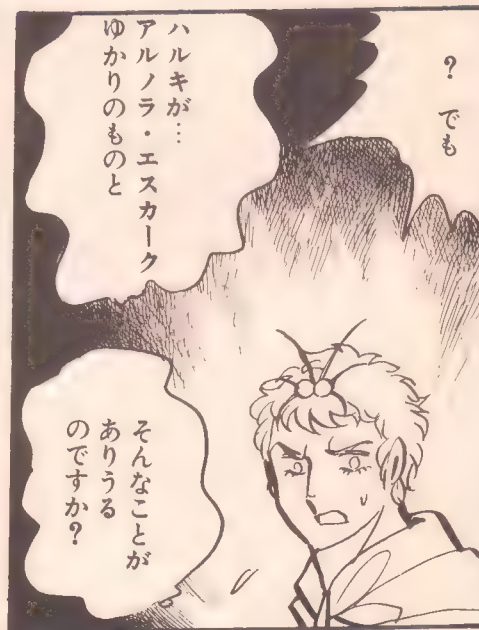 ？ でも
ハルキが…
アルノラ・エスカーク
ゆかりのものと
そんなことが
ありうる
のですか？